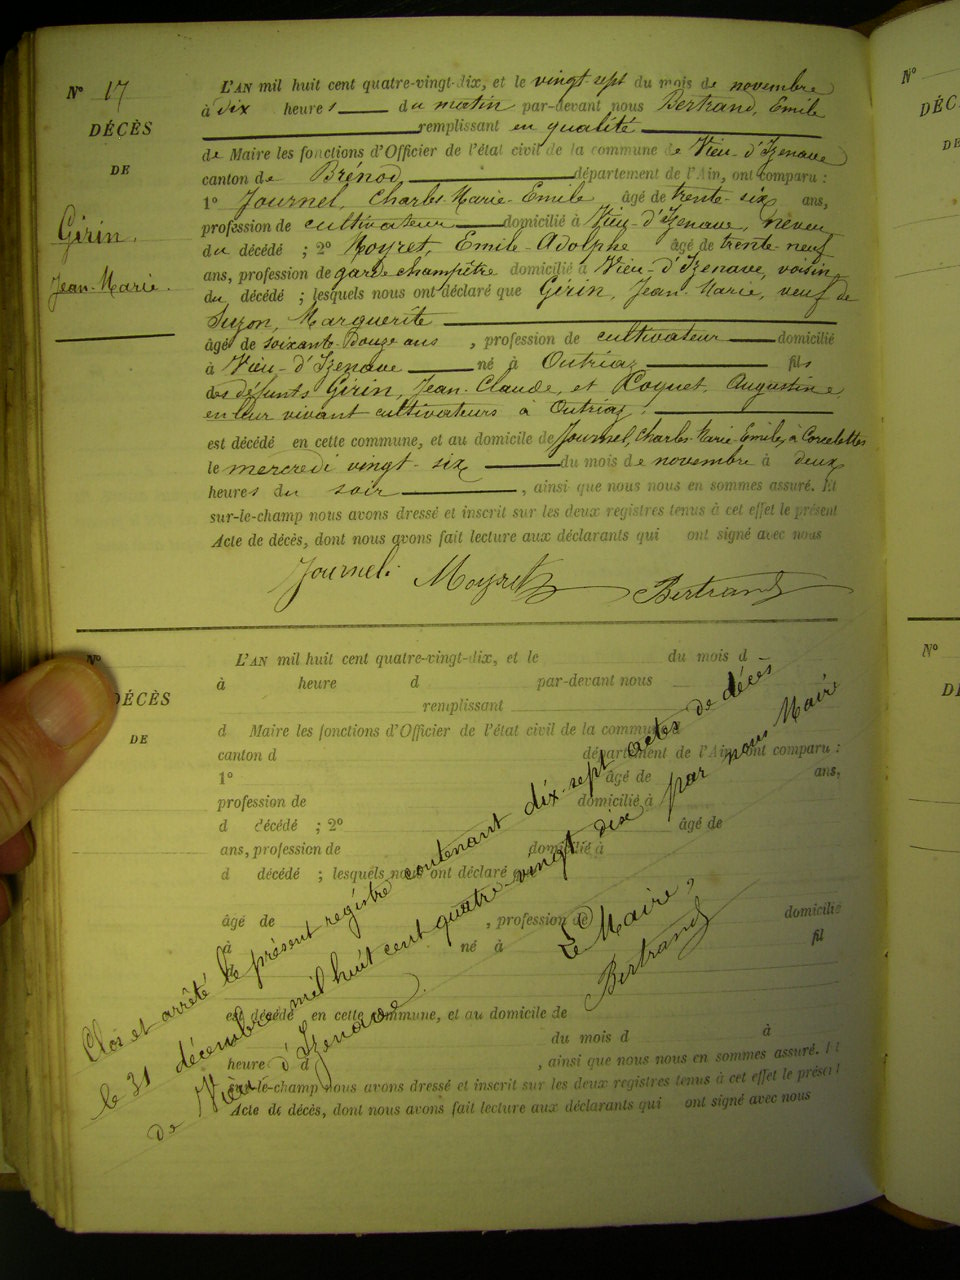 N° 17
DÉCÈS
DE
Girin,
Jean-Marie.
L'AN mil huit cent quatre-vingt-dix, et le vingt sept du mois de novembre
à Dix heures du matin par-devant nous Bertrand, Emile
remplissant en qualité
de Maire les fonctions d'Officier de l'état civil de la commune de Vieu-d'Izenave
canton de Brénod département de l'Ain, ont comparu :
1° Journel, Charles-Marie-Emile âgé de trente-six ans,
profession de cultivateur domicilié à Vieu-d'Izenave, neveu
du décédé ; 2° Moyret, Emile-Adolphe âgé de trente-neuf
ans, profession de garde champêtre domicilié à Vieu-d'Izenave, voisin
du décédé ; lesquels nous ont déclaré que Girin, Jean-Marie, veuf de
Suzon, Marguerite
âgé de soixante-douze ans , profession de cultivateur domicilié
à Vieu-d'Izenave né à Outriaz fils
des défunts Girin, Jean-Claude, et Coquet, Augustine,
en leur vivant cultivateurs à Outriaz,
est décédé en cette commune, et au domicile de Journel, Charles-Marie-Emile, à Corcelettes
le mercredi vingt-six du mois de novembre à deux
heures du soir , ainsi que nous nous en sommes assuré. Et
sur-le-champ nous avons dressé et inscrit sur les deux registres tenus à cet effet le présent
Acte de décès, dont nous avons fait lecture aux déclarants qui ont signé avec nous
Journel. Moyret Bertrand
N°
DÉCÈS
DE
L'AN mil huit cent quatre-vingt-dix, et le du mois d
à heure d par-devant nous
remplissant
d Maire les fonctions d'Officier de l'état civil de la commune d
canton d département de l'Ain, ont comparu :
1° âgé de ans,
profession de domicilié à
d décédé ; 2° âgé de
ans, profession de domicilié à
d décédé ; lesquels nous ont déclaré que
âgé de , profession de domicilié
à né à fil
d
est décédé en cette commune, et au domicile de
du mois d à
heure d , ainsi que nous nous en sommes assuré. Et
sur-le-champ nous avons dressé et inscrit sur les deux registres tenus à cet effet le présent
Acte de décès, dont nous avons fait lecture aux déclarants qui ont signé avec nous
Clos et arrêté le présent registre contenant dix-sept actes de décès
le 31 décembre mil huit cent quatre-vingt dix par nous Maire
de Vieu d'Izenave.
Le Maire,
Bertrand
N°
DÉC
DE
N°
D